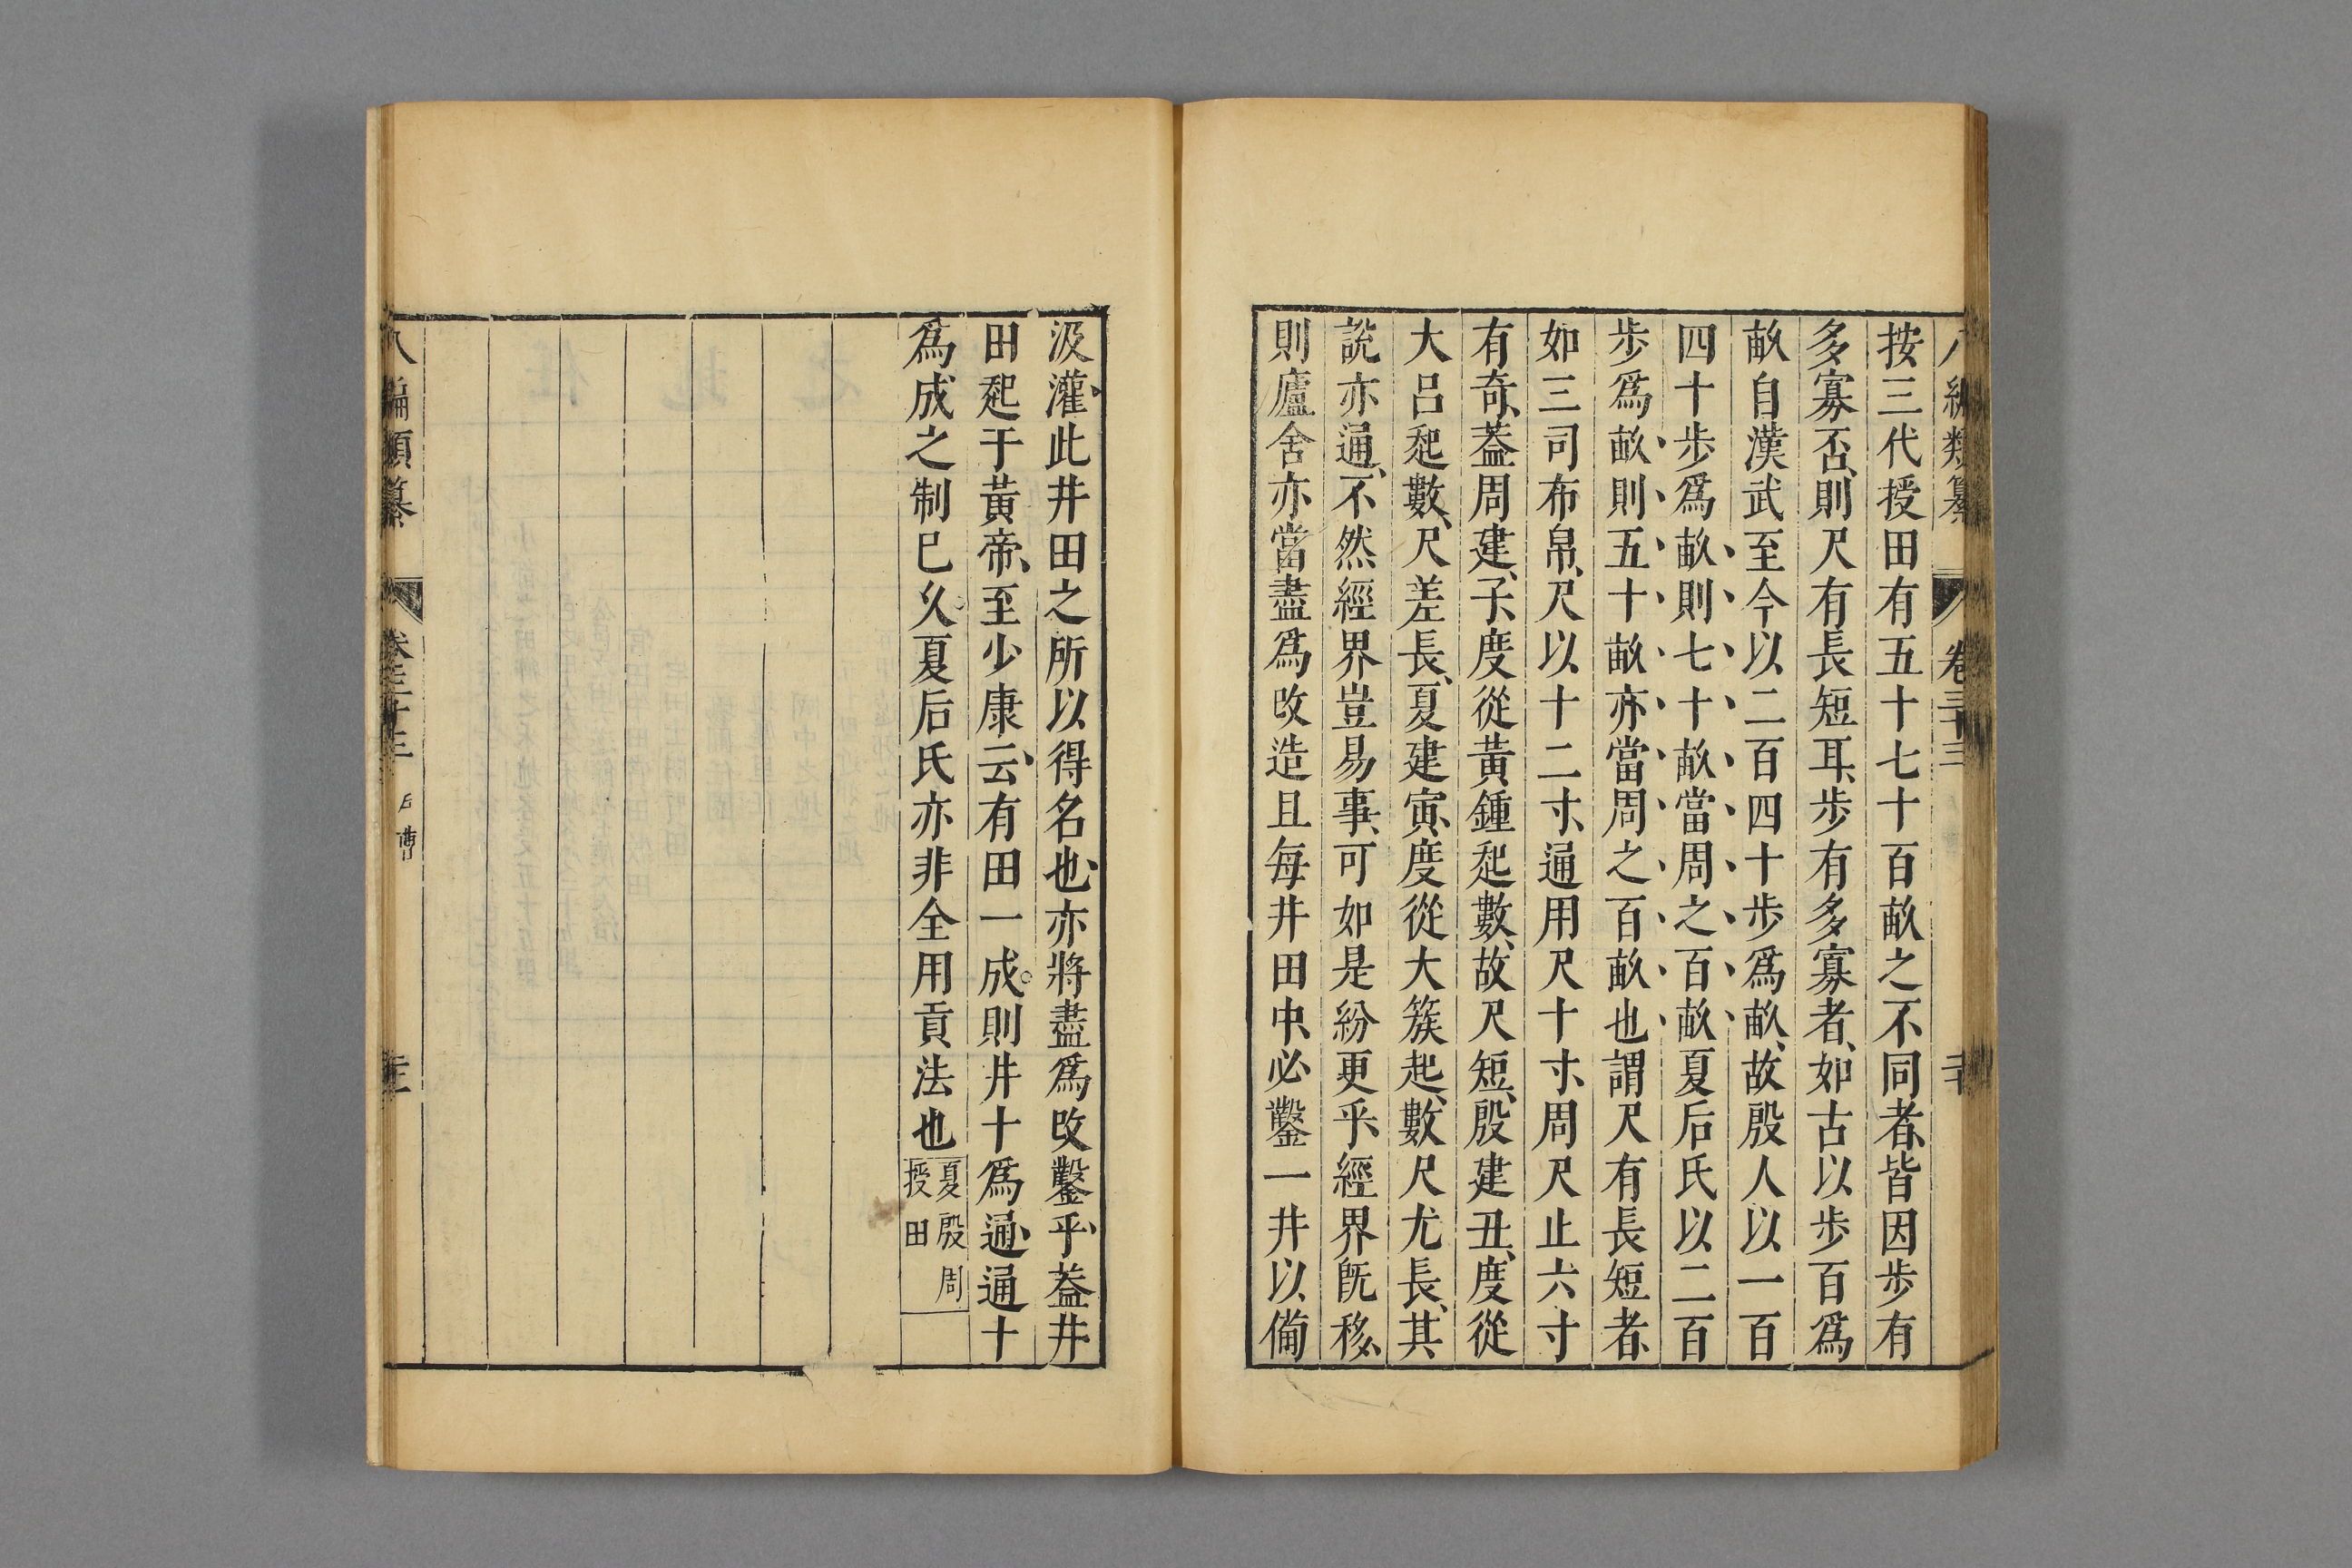 八編類纂 卷三十三 二十
按三代授田有五十七十百畝之不同者皆因步有
多寡否則尺有長短耳步有多寡者如古以步百爲
畝自漢武至今以二百四十步爲畝故殷人以一百
四十步爲畝則七十畝當周之百畝夏后氏以二百
步爲畝則五十畝亦當周之百畝也謂尺有長短者
如三司布帛尺以十二寸通用尺十寸周尺止六寸
有奇蓋周建子度從黃鍾起數故尺短殷建丑度從
大呂起數尺差長夏建寅度從大簇起數尺尤長其
說亦通不然經界豈易事可如是紛更乎經界旣移
則廬舍亦當盡爲改造且每井田中必鑿一井以備
汲灌此井田之所以得名也亦將盡爲改鑿乎蓋井
田起于黃帝至少康云有田一成則井十爲通通十
爲成之制已久夏后氏亦非全用貢法也
夏殷周
授田
八編類纂 卷三十三